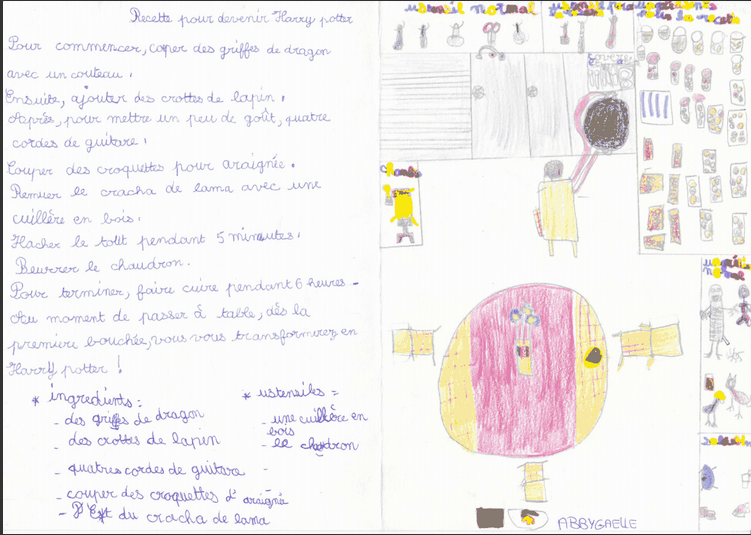 Recette pour devenir Harry potter
Pour commencer, couper des griffes de dragon
avec un couteau.
Ensuite, ajouter des crottes de lapin.
Après, pour mettre un peu de goût, quatre
cordes de guitare.
Couper des croquettes pour araignée.
Remuer le cracha de lama avec une
cuillère en bois.
Hacher le tout pendant 5 minutes.
Beurrer le chaudron.
Pour terminer, faire cuire pendant 6 heures.
Au moment de passer à table, dès la
premiere bouchée, vous vous transformrez en
Harry potter !
* ingredients :
- des griffes de dragon
- des crottes de lapin
- quatres cordes de guitare
- couper des croquettes d'araigné
- du cracha de lama
* ustensiles =
- une cuillère en
bois
- le chaudron
ustensil normal
ABBYGAELLE